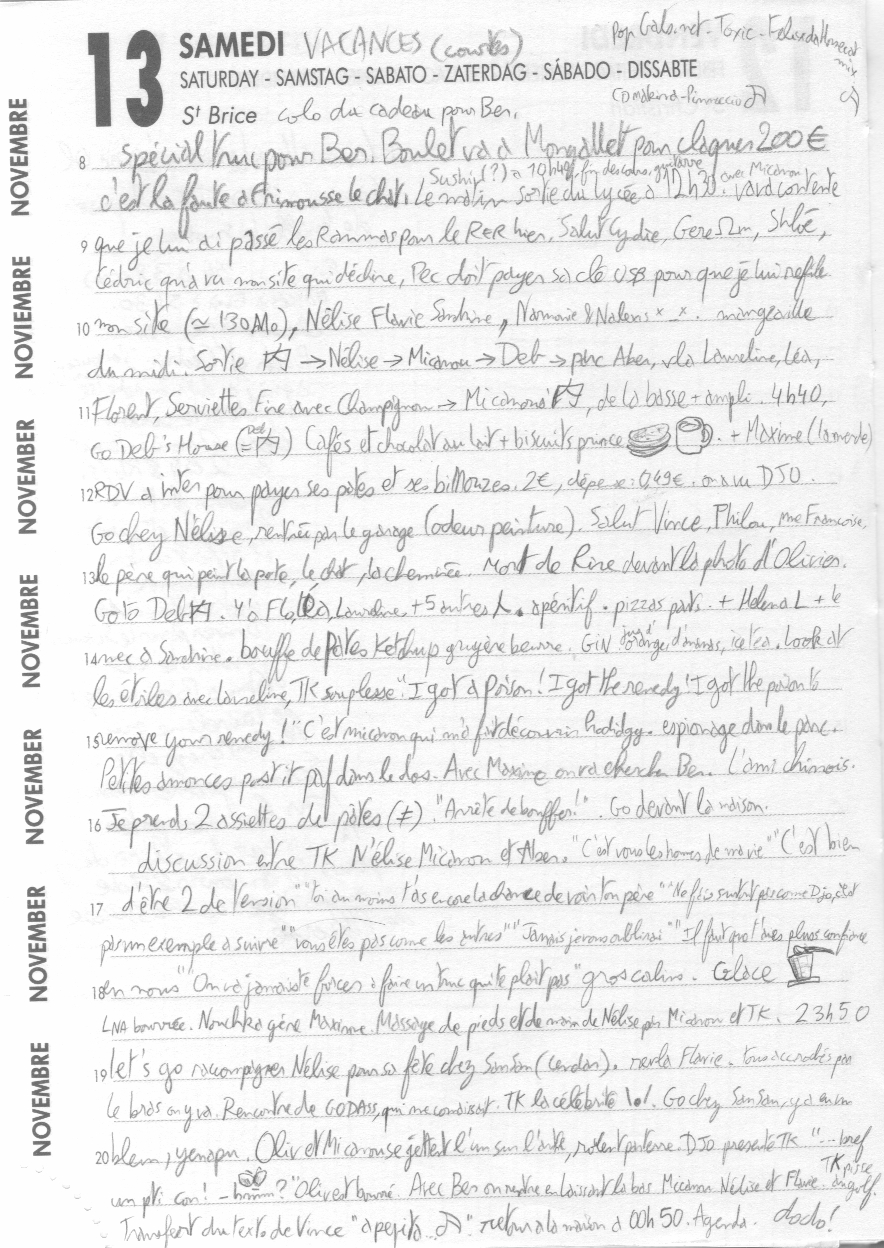 13 SAMEDI VACANCES (courtes)
Pop Gals.net - Toxic - Felixdahousecat mix
SATURDAY - SAMSTAG - SABATO - ZATERDAG - SÁBADO - DISSABTE
St Brice colo du cadeau pour Ber.
8 spécial truc pour Ber. Boulet va à Mongallet pour claquer 200€
Sushi (?) à 10h45 fin des cours, guitare avec Micamon
c'est la faute à frimousse le chat. Le matin sortie du lycée à 12h30. Vard contente
9 que je lui ai passé les Rammas pour le RER hier. Salut Cydie, GereΩm, Shloé,
Cédric qu'a vu mon site qui décline, Pec doit payer sa clé USB pour que je lui refile
10 mon site (≃ 130Mo), Nélise Flavie Sandrine, Namanie & Nalens x_x. mangeaille
du midi. Sortie → Nélise → Micamou → Deb → parc Aber, vla Laureline, Léa,
11 Florent, Serviettes Fine avec Champignon → Micamous, de la basse + ampli. 4h40,
Go Deb's House (=) Cafés et chocolat au lait + biscuits prince. + Maxime (la merde)
12 RDV à inter pour payer ses pâtes et ses billouzes. 2€, dépense: 0,49€. on a vu DJO.
Go chez Nélise, rentrée par le garage (odeur peinture). Salut Vince, Philou, mme Françoise,
13 le père qui peint la porte, le chat, la cheminée. Mort de Rire devant la photo d'Olivier.
Go to Deb. Y'a Flo, Léa, Laureline, +5 autres. apéritif. pizzas parts. + Helena L + le
14 mec à Sandrine. bouffe de pâtes ketchup gruyère beurre. GiN jus d'orange, d'ananas, ice tea. Look at
les étoiles avec Laureline, TK souplesse "I got a poison! I got the remedy! I got the poison to
15 remove your remedy!" C'est micamou qui m'a fait découvrir hadidgy. espionage dans le parc.
Petites annonces post it paf dans le dos. Avec Maxime on va chercher Ber. L'ami chinois.
16 Je prends 2 assiettes de pâtes (≠). "Arrête de bouffer!". Go devant la maison.
discussion entre TK Nélise Micamou et Aber. "C'est vous les homes de ma vie" "C'est bien
17 d'être 2 de tension" "toi au moins t'as encore la chance de voir ton père" "Ne fais surtout pas comme Djo, c'est
pas un exemple à suivre" "vous êtes pas comme les autres" "Jamais je vous oublirai" "Il faut que t'aies plus confiance
18 en nous" "On va jamais te forcer à faire un truc qui te plait pas" gros calins. Glace
LNA bourrée. Nouchka gère Maxime. Massage de pieds et de main de Nélise par Micamou et TK. 23h50
19 let's go raccompagner Nélise pour sa fête chez SanSan (). revla Flavie. tous accrochés par
le bras on y va. Rencontre de GODASS, qui me connaissait. TK la célébrité \o/. Go chez SanSan, y a eu un
20 blem, yenapu. Oliv et Micamou se jettent l'un sur l'autre, roulent par terre. DJO présente TK "... bref
un pti con! - hmmm?" Oliv est bourré. Avec Ber on rentre en laissant là bas Micamou Nélise et Flavie. TK pisse au golf.
Transfert du texto de Vince "a pepita". retour à la maison à 00h50. Agenda. dodo!
NOVEMBRE
NOVIEMBRE
NOVEMBER
NOVEMBRE
NOVEMBER
NOVEMBER
NOVEMBRE